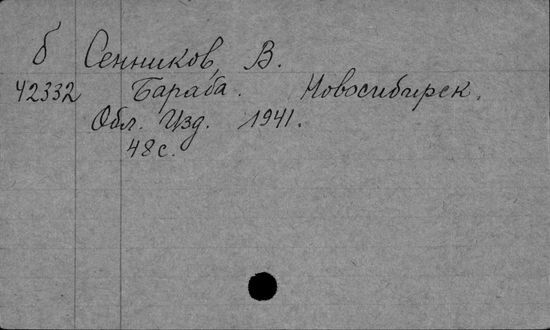 б Сенников, В.
42332 Бараба. Новосибирск,
Обл. Изд. 1941.
48 с.